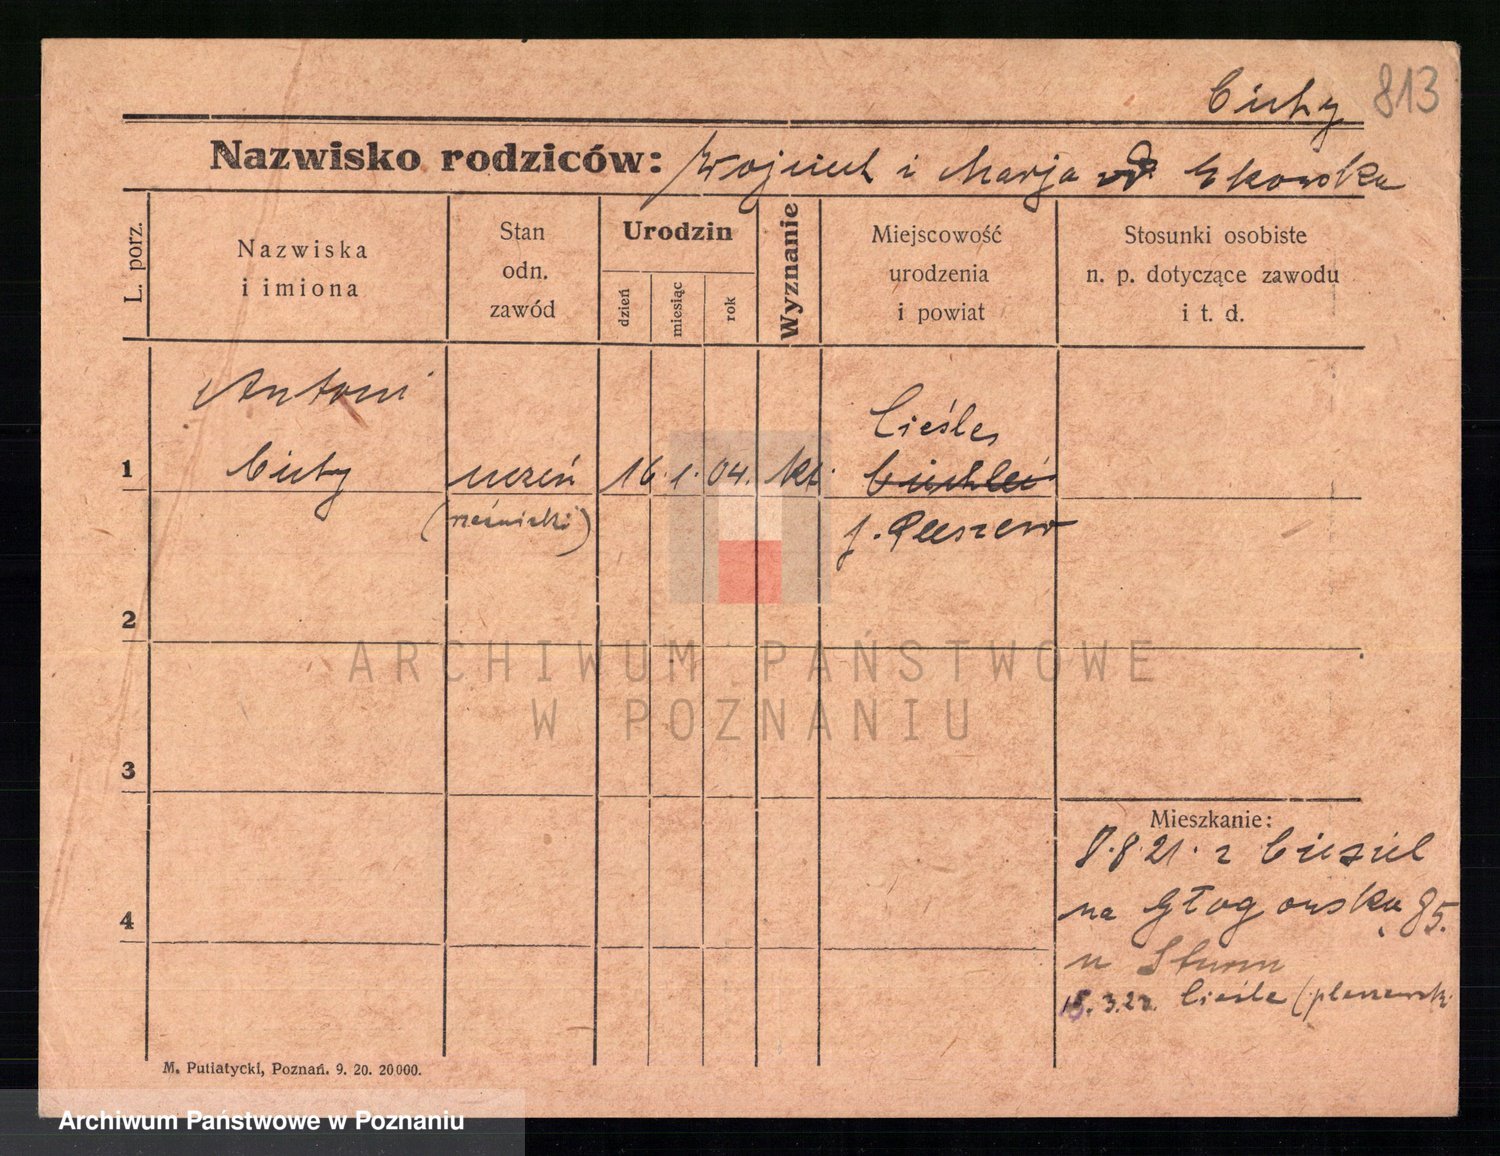 Cichy 813
Nazwisko rodziców: Wojciech i Marja
L. porz.
Nazwiska
i imiona
Stan
odn.
zawód
Urodzin
dzień
miesiąc
rok
Wyznanie
Miejscowość
urodzenia
i powiat
Stosunki osobiste
n. p. dotyczące zawodu
i t. d.
Antoni
Cieśle,
1 Cichy uczeń 16. 1. 04. kt.
(rzeźnicki)
p. Pleszew
2
ARCHIWUM PAŃSTWOWE
W POZNANIU
3
Mieszkanie:
8.8 21. z
4
na Głogowska 85.
u Sturm
15.3.22. Cieśle (pleszewski
M. Putiatycki, Poznań. 9. 20. 20000.
Archiwum Państwowe w Poznaniu